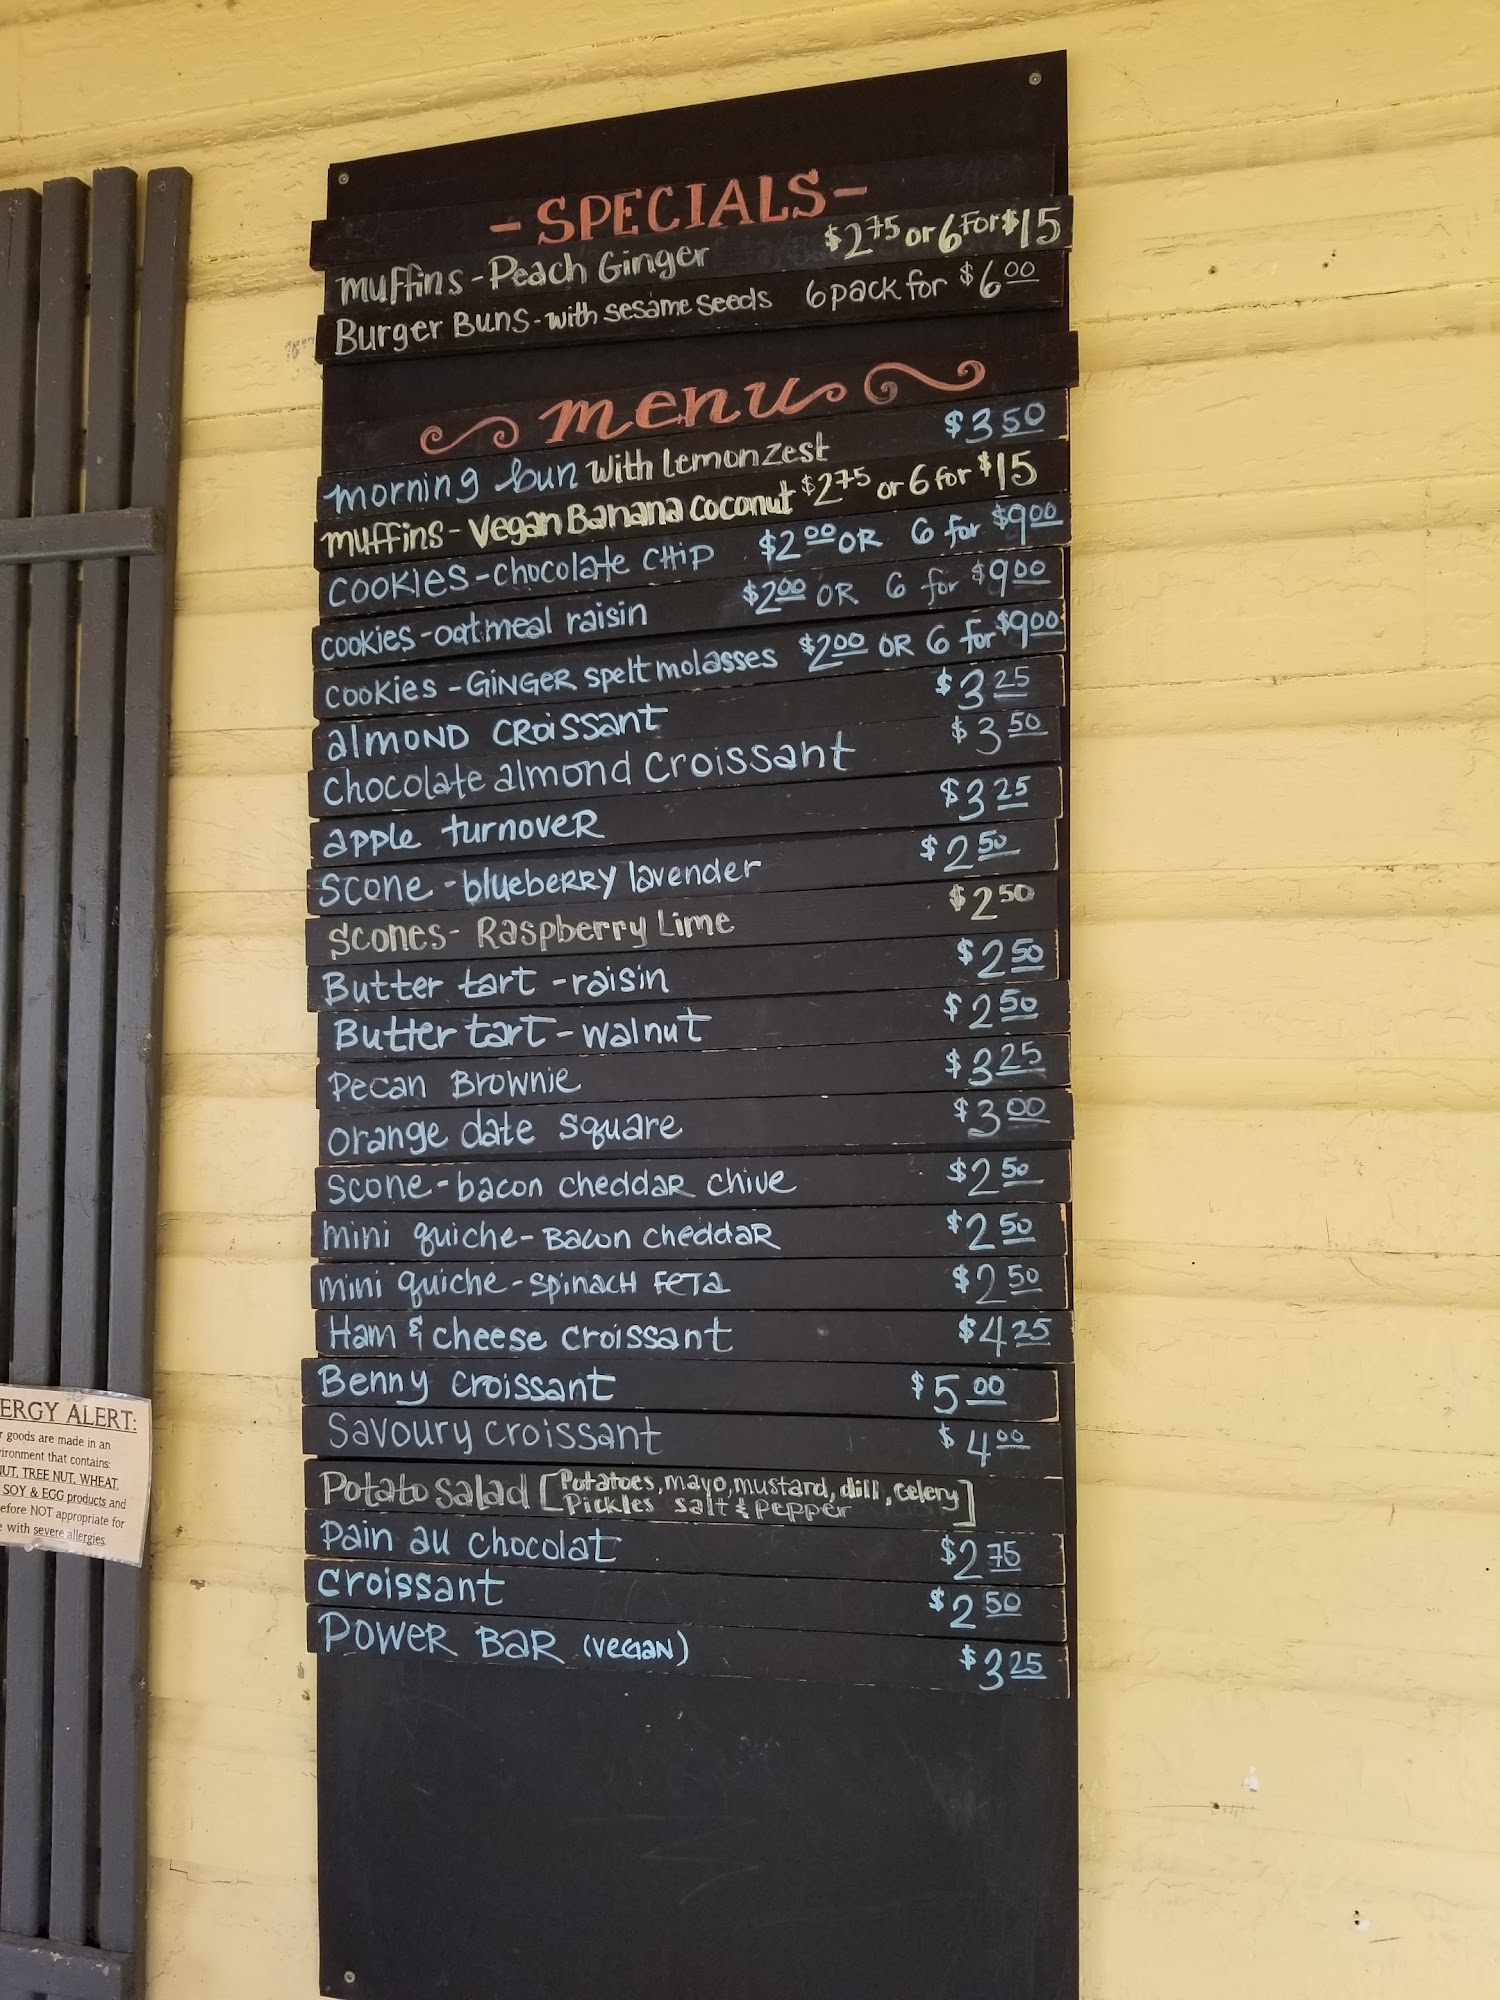 - SPECIALS -
muffins - Peach Ginger $2 75 or 6 For $15
Burger Buns - with sesame seeds 6 pack for $6 00
menu
morning bun with Lemon Zest $3 50
muffins - Vegan Banana Coconut $2 75 or 6 for $15
cookies - chocolate chip $2 00 OR 6 for $9 00
cookies - oatmeal raisin $2 00 OR 6 for $9 00
cookies - GiNGeR spelt molasses $2 00 OR 6 for $9 00
almond croissant $3 25
chocolate almond croissant $3 50
apple turnover $3 25
Scone - blueberry lavender $2 50
Scones - Raspberry Lime $2 50
Butter tart - raisin $2 50
Butter tart - walnut $2 50
Pecan Brownie $3 25
orange date square $3 00
scone - bacon cheddar chive $2 50
mini quiche - Bacon cheddar $2 50
mini quiche - spinach feta $2 50
Ham & cheese croissant $4 25
Benny croissant $5 00
Savoury croissant $4 00
Potato Salad [Potatoes, mayo, mustard, dill, celery
Pickles salt & pepper]
Pain au chocolat $2 75
croissant $2 50
Power Bar (vegan) $3 25
ERGY ALERT:
goods are made in an
ironment that contains:
NUT, TREE NUT, WHEAT,
SOY & EGG products and
efore NOT appropriate for
e with severe allergies